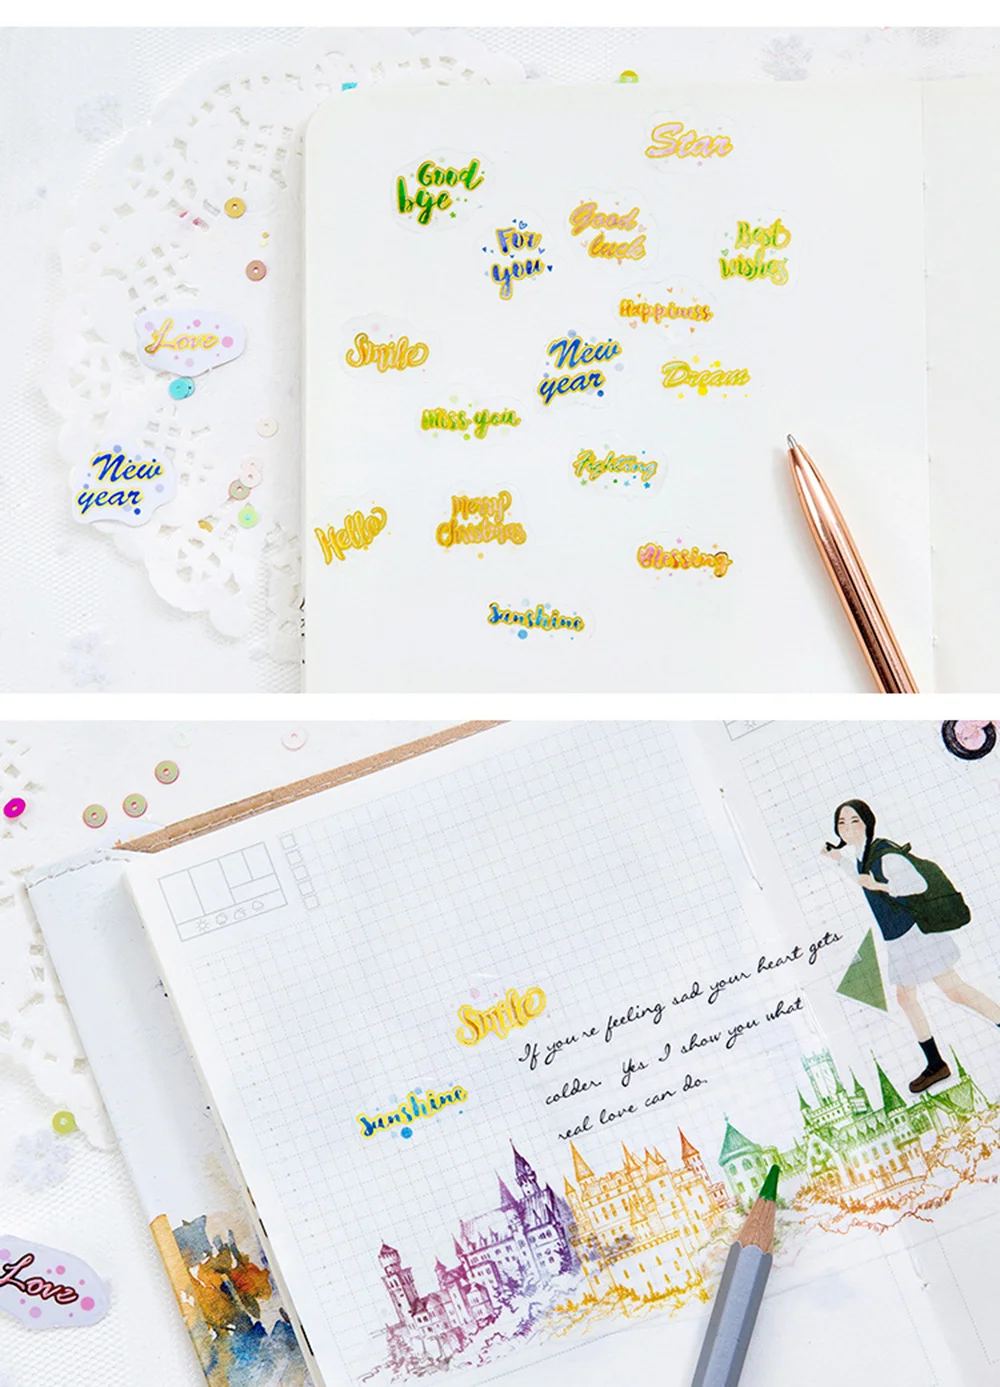 Star
Good
bye
Good
luck
For
you
Best
wishes
Happiness
Love
Smile
New
year
Dream
Miss you
New
year
Fighting
Hello
Merry
Christmas
Blessing
Sunshine
Smile
If you're feeling sad your heart gets
colder. Yes I show you what
real love can do.
Sunshine
Love